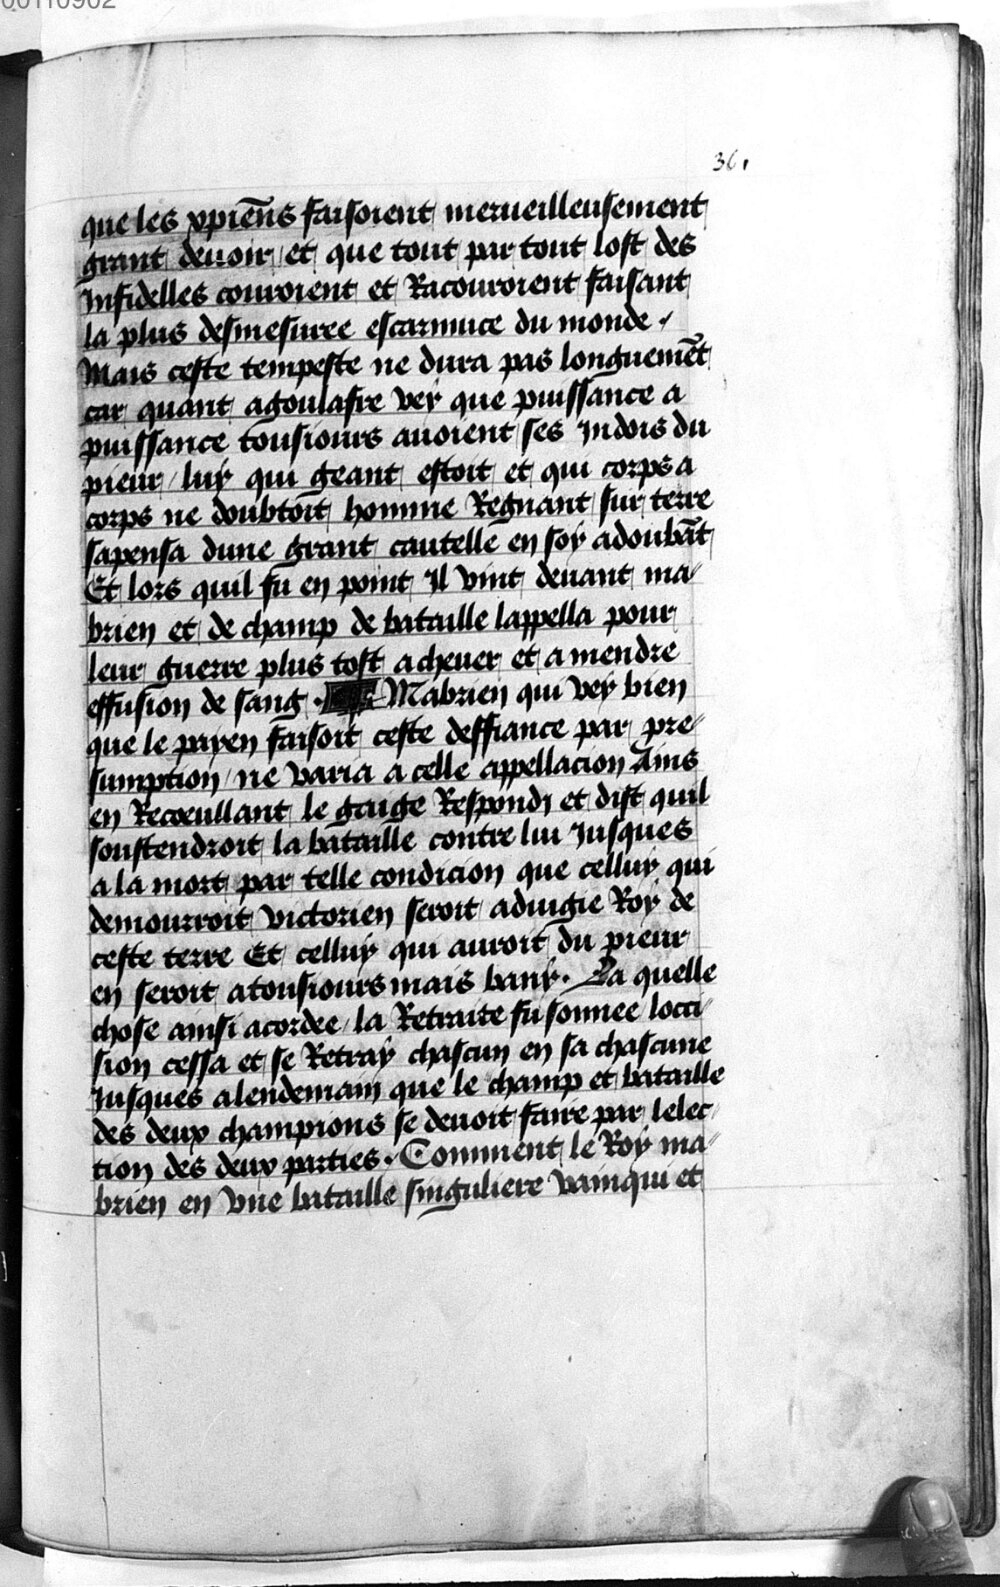 00110902
36.
que les xpie̅ns faisoient merueilleusement
grant deuoir et que tout par tout lost des
Infidelles couroient et Racouroient faisant
la plus desmesuree escarmuce du monde /
Mais ceste tempeste ne dura pas longueme̅t
car quant agoulafre vey que puissance a
puissance tousiours auoient ses Indois du
pieur / luy qui geant estoit et qui corps a
corps ne doubtoit homme Regnant sur terre
sapensa dune grant cautelle en soy adouba̅t
Et lors quil fu en point Il vint deuant ma/
brien et de champ de bataille lappella pour
leur guerre plus tost acheuer et a mendre
effusion de sang . Mabrien qui vey bien
que le payen faisoit ceste deffiance par pre/
sumption / ne varia a celle appellacion Ains
en Recoeullant le gaige Respondi et dist quil
soustendroit la bataille contre lui Jusques
a la mort par telle condicion que celluy qui
demourroit victorien seroit adiugie Roy de
ceste terre Et celluy qui auroit du pieur
en seroit atousiours mais bany . La quelle
chose ainsi acordee / la Retraite fu sonnee locci/
sion cessa et se Retray chascun en sa chascune
Jusques alendemain que le champ et bataille
des deux champions se deuoit faire par lelec/
tion des deux parties . Comment le Roy ma/
brien en vne bataille singuliere vainqui et